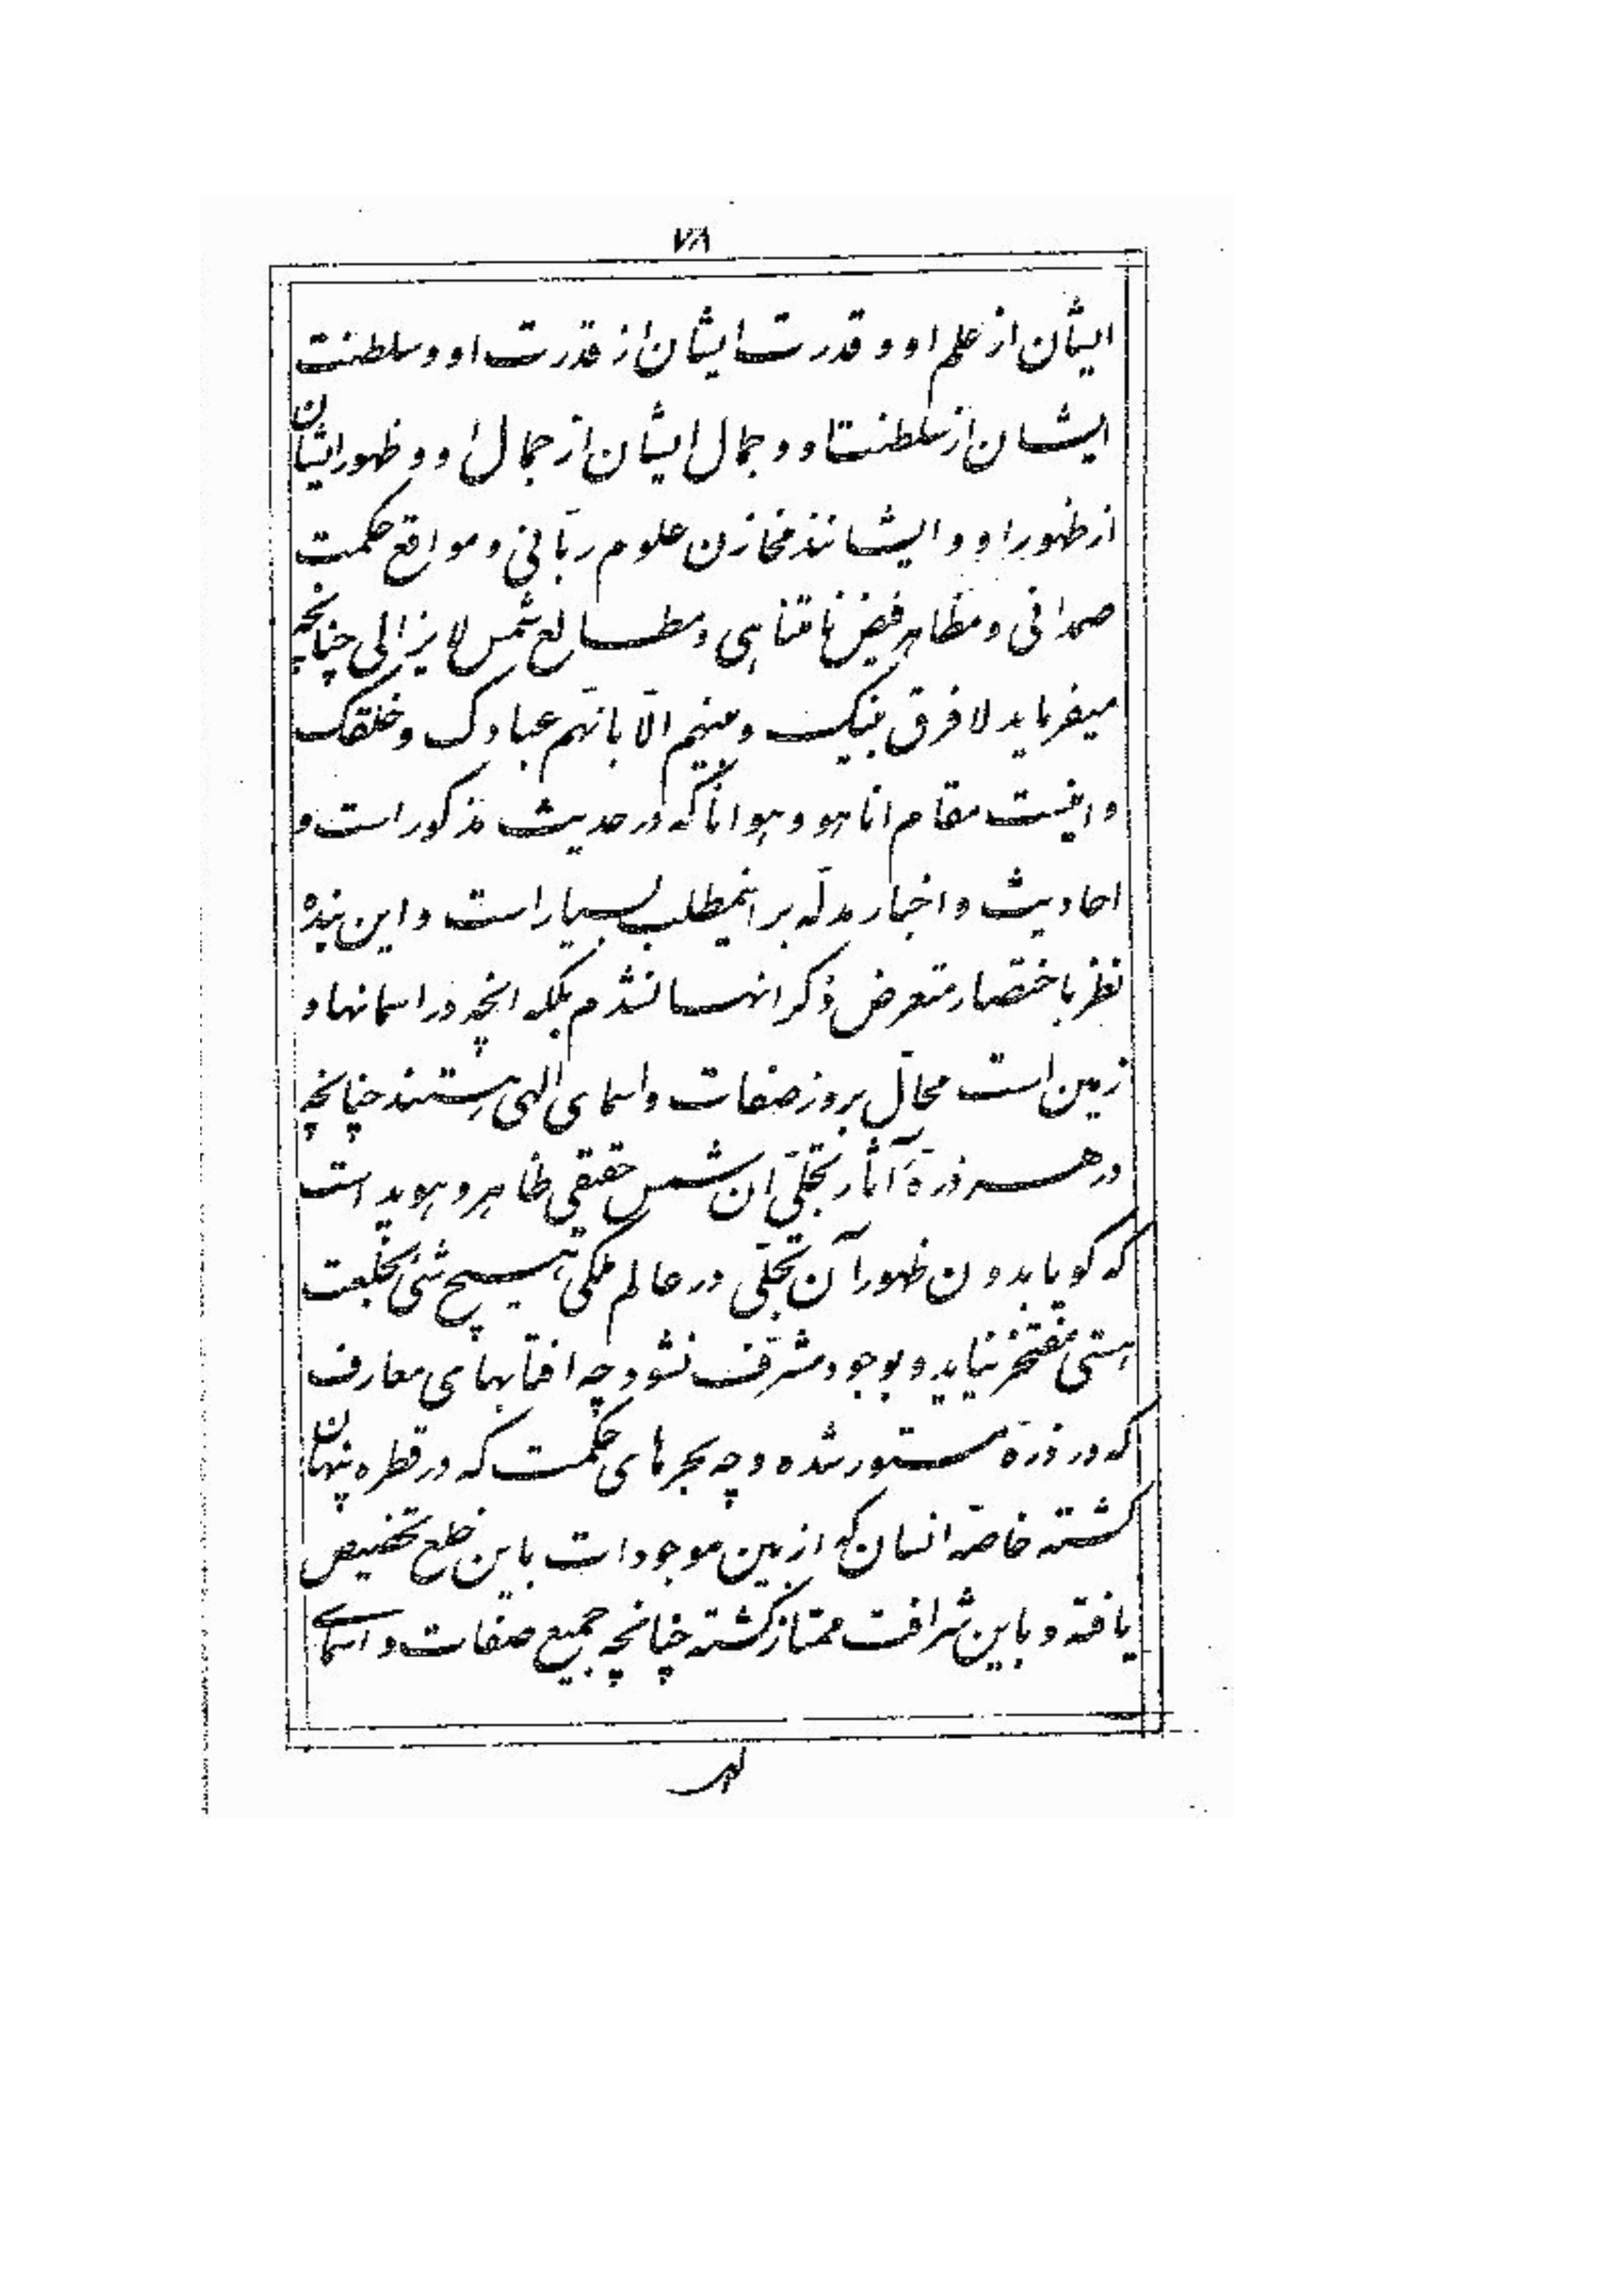 ۷۸
ایشان از علم او و قدرت ایشان از قدرت او و سلطنت
ایشان از سلطنت او و جمال ایشان از جمال او و ظهور ایشان
از ظهور او و ایشانند مخازن علوم ربّانی و مواقع حکمت
صمدانی و مظاهر فیض نامتناهی و مطالع شمس لایزالی چنانچه
میفرماید لا فرق بینک و بینهم الّا بانّهم عبادک و خلقک
و اینست مقام انا هو و هو انا که در حدیث مذکور است و
احادیث و اخبار مدلّه بر اینمطلب بسیار است و این بنده
نظر باختصار متعرض ذکر انها نشدم بلکه انچه در اسمانها و
زمین است محالّ بروز صفات و اسمای الهی هستند چنانچه
در هر ذرّه آثار تجلّی آن شمس حقیقی ظاهر و هویدا است
که گویا بدون ظهور آن تجلّی در عالم ملکی هیچ شئ بخلعت
هستی مفتخر نیاید و بوجود مشرّف نشود چه افتابهای معارف
که در ذرّه مستور شده و چه بحرهای حکمت که در قطره پنهان
گشته خاصّه انسان که از بین موجودات باین خلع تخصیص
یافته و باین شرافت ممتاز گشته چنانچه جمیع صفات و اسمای